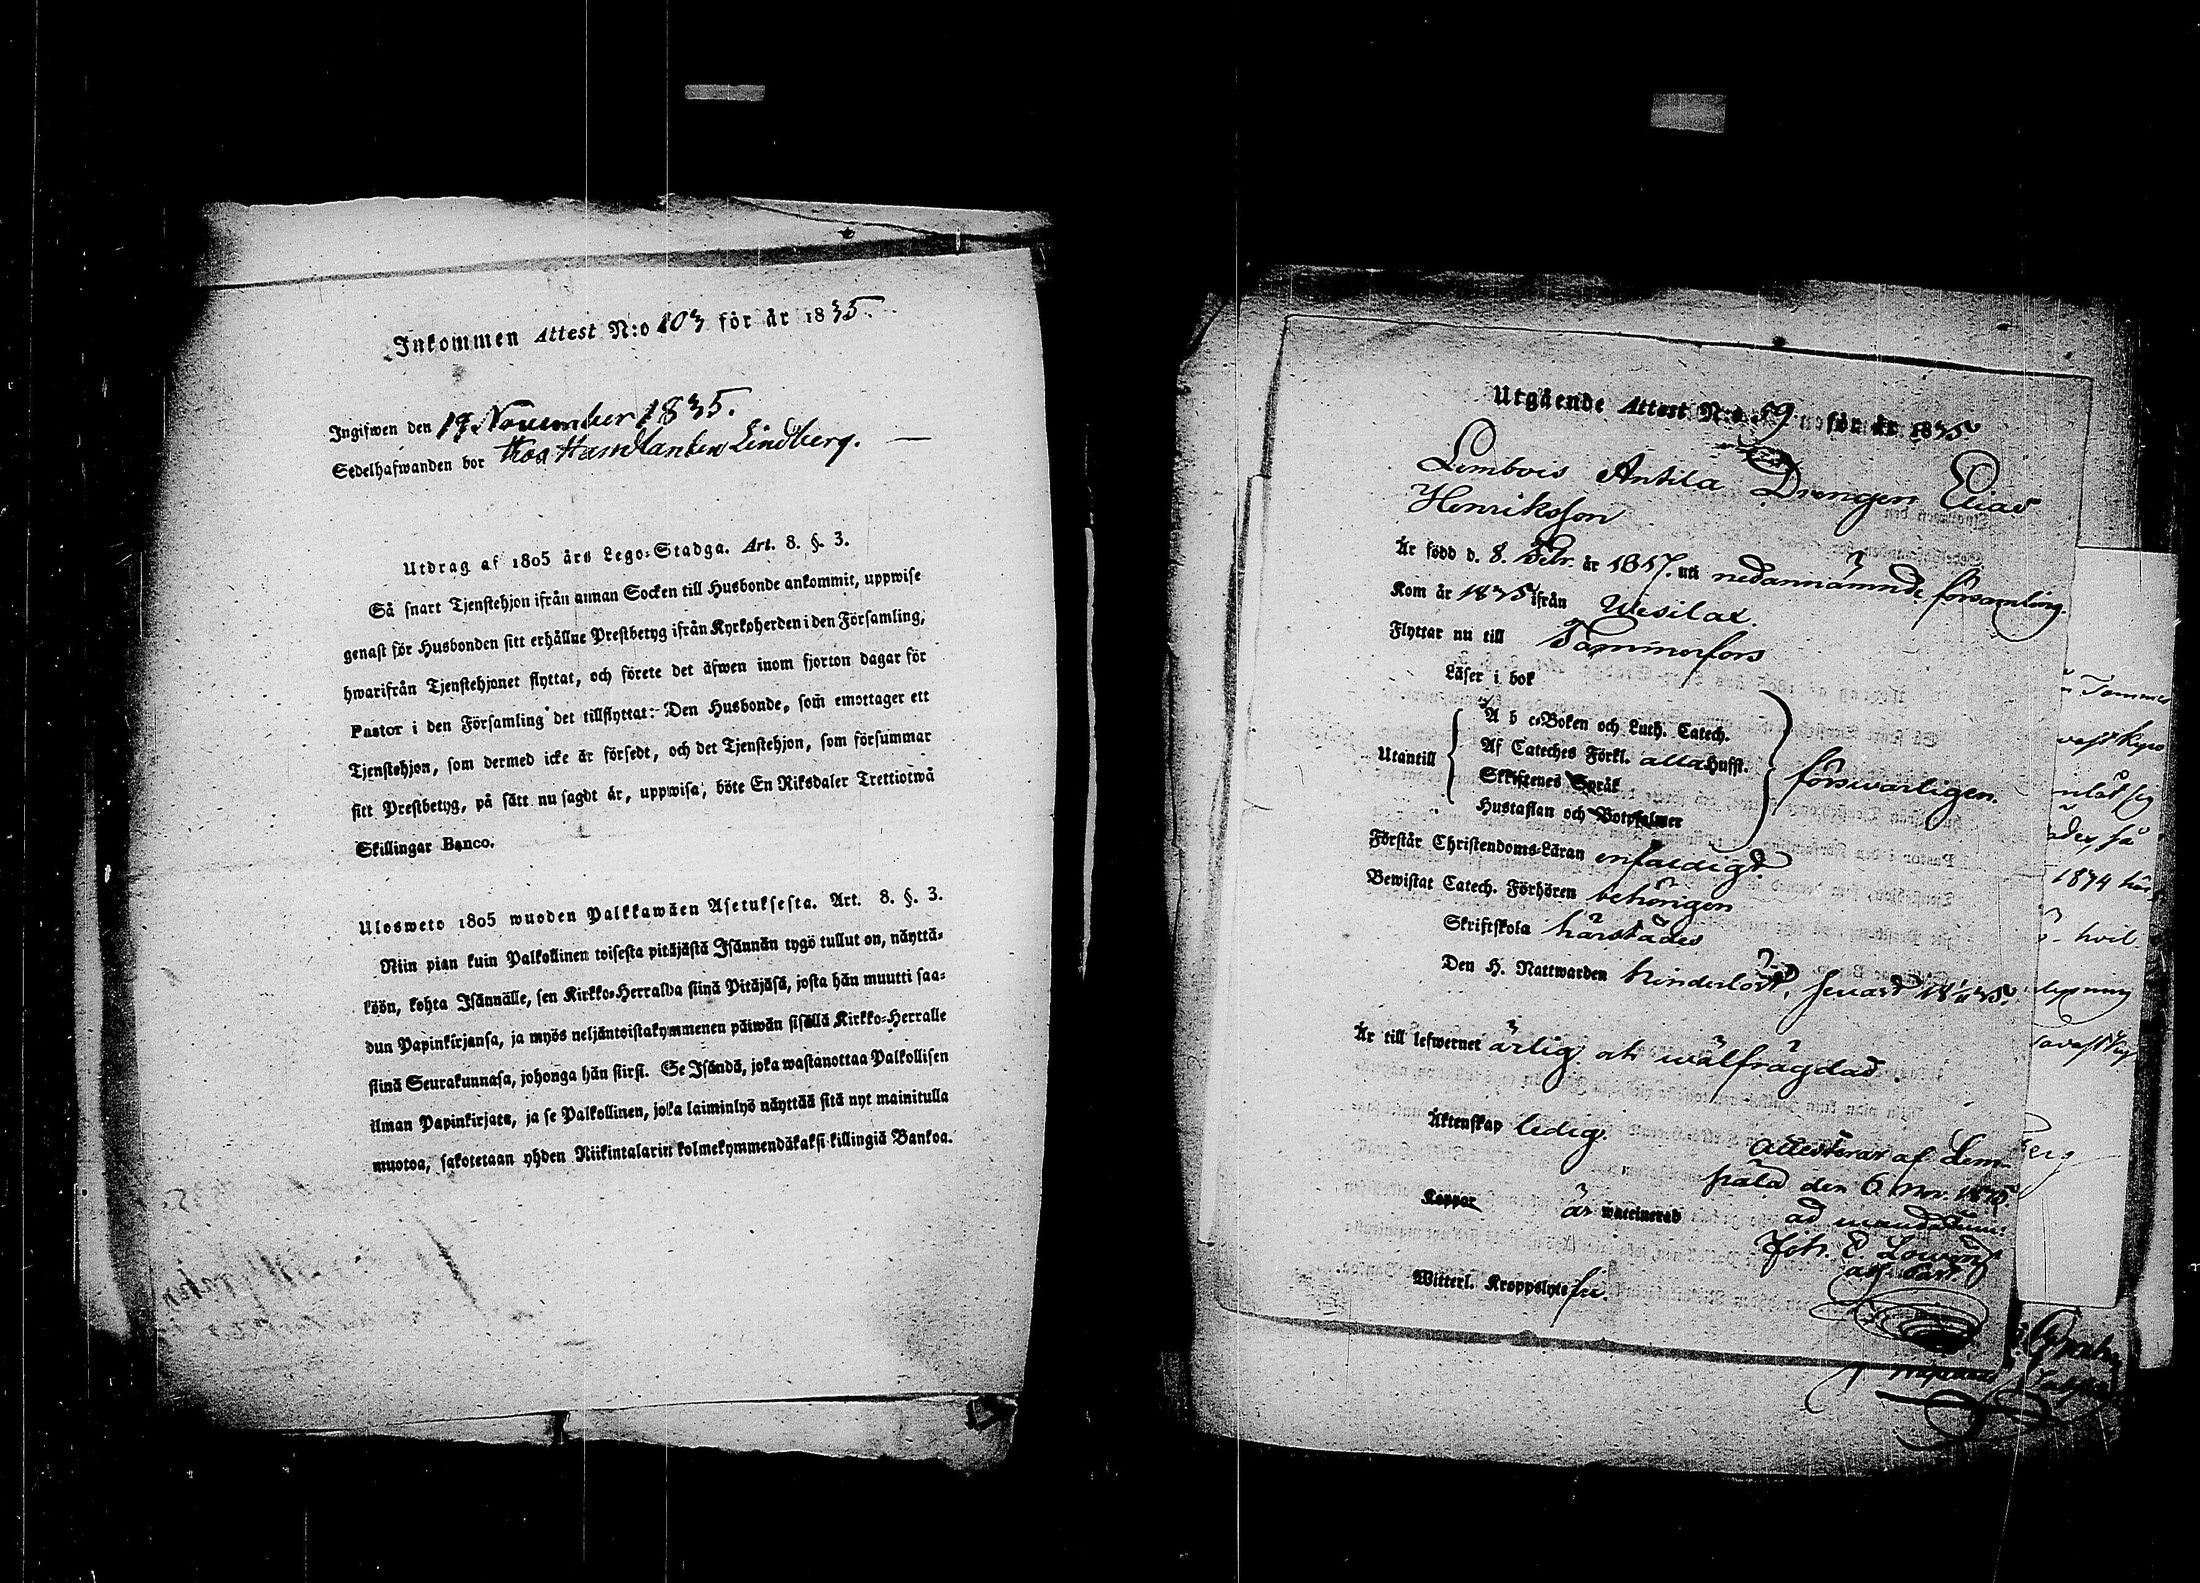 Inkommen Attest N:o 103 för år 1835.
Ingifwen den 17 November 1835.
Sedelhafwanden bor hos Handlanden Lindberg.
Utdrag af 1805 års Lego-Stadga. Art. 8. §. 3.
Så snart Tjenstehjon ifrån annan Socken till Husbonde ankommit, uppwise
genast för Husbonden sitt erhållne Prestbetyg ifrån Kyrkoherden i den Församling,
hwarifrån Tjenstehjonet flyttat, och förete det äfwen inom fjorton dagar för
Pastor i den Församling det tillflyttat: Den Husbonde, som emottager ett
Tjenstehjon, som dermed icke är försedt, och det Tjenstehjon, som försummar
sitt Prestbetyg, på sätt nu sagdt är, uppwisa, böte En Riksdaler Trettiotwå
Skillingar Banco.
Ulosweto 1805 wuoden Palkkawäen Asetuksesta. Art. 8. §. 3.
Niin pian kuin Palkollinen toisesta pitäjästä Isännän tygö tullut on, näyttä-
köön, kohta Isännälle, sen Kirkko-Herralda siinä Pitäjäsä, josta hän muutti saa-
dun Papinkirjansa, ja myös neljäntoistakymmenen päiwän sisällä Kirkko-Herralle
siinä Seurakunnasa, johonga hän siirsi. Se Isändä, joka wastanottaa Palkollisen
ilman Papinkirjata, ja se Palkollinen, joka laiminlyö näyttää sitä nyt mainitulla
muotoa, sakotetaan yhden Riikintalarin kolmekymmendäkaksi killingiä Bankoa.
Utgående Attest N:o 59 för år 1835
Lembois Antila Drengen Elias
Henriksson
Är född d. 8. Febr. år 1817. uti nedannämnde församling.
Kom år 1835 ifrån Wesilax.
Flyttar nu till Tammerfors
Läser i bok
A b c-Boken och Luth. Catech.
Utantill Af Cateches Förkl. alla Hufst. försvarligen.
Skriftenes Språk
Hustaflan och Botpsalmer
Förstår Christendoms-Läran enfaldigt
Bewistat Catech. Förhören behörigen
Skriftskola härstädes
Den H. Nattwarden hinderlöst, senast
Är till lefwernet ärlig och wälfrägdad.
Äktenskap ledig.
Attesterar af Lem-
pälä den 6 Nov. 1835.
Koppor är waccinerad
ad mandatum
Joh. E.
Witterl. Kroppslyte fri.
1874